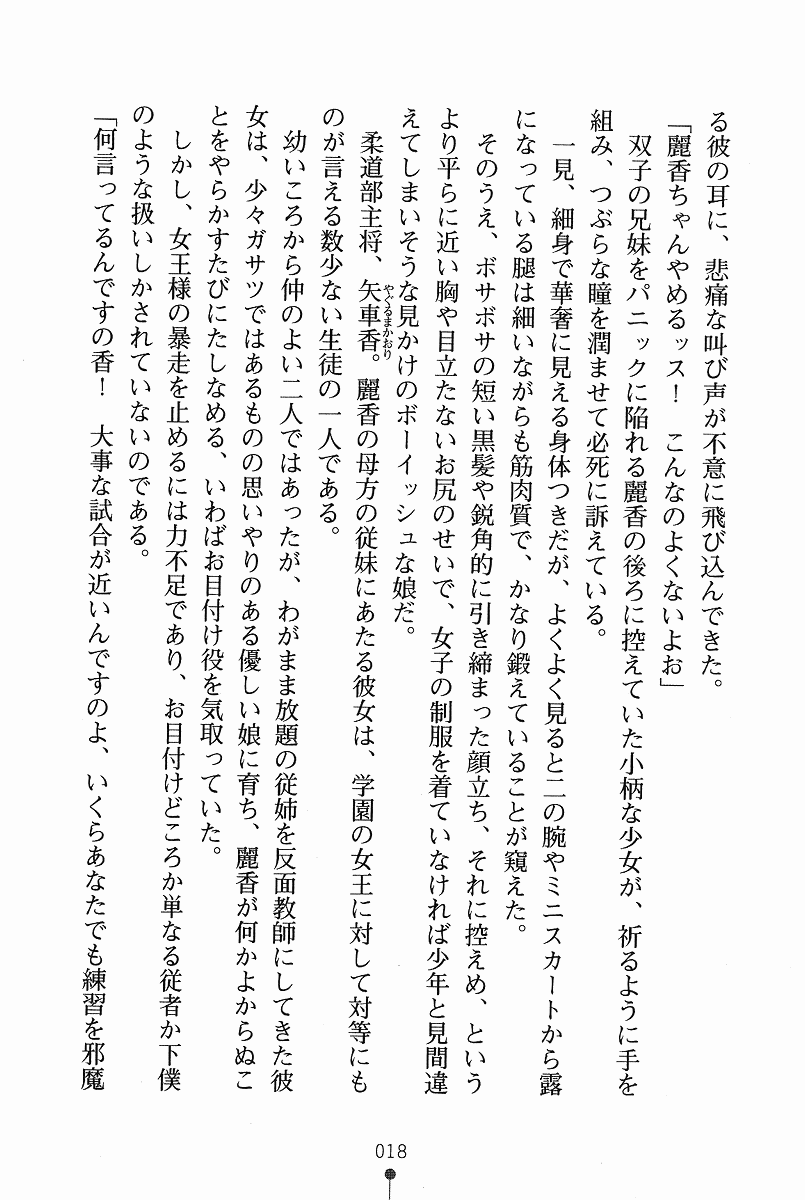 る彼の耳に、悲痛な叫び声が不意に飛び込んできた。
「麗香ちゃんやめるッス！　こんなのよくないよお」
　双子の兄妹をパニックに陥れる麗香の後ろに控えていた小柄な少女が、祈るように手を
組み、つぶらな瞳を潤ませて必死に訴えている。
　一見、細身で華奢に見える身体つきだが、よくよく見ると二の腕やミニスカートから露
になっている腿は細いながらも筋肉質で、かなり鍛えていることが窺えた。
　そのうえ、ボサボサの短い黒髪や鋭角的に引き締まった顔立ち、それに控えめ、という
より平らに近い胸や目立たないお尻のせいで、女子の制服を着ていなければ少年と見間違
えてしまいそうな見かけのボーイッシュな娘だ。
　柔道部主将、矢車香。麗香の母方の従妹にあたる彼女は、学園の女王に対して対等にも
やぐるまかおり
のが言える数少ない生徒の一人である。
　幼いころから仲のよい二人ではあったが、わがまま放題の従姉を反面教師にしてきた彼
女は、少々ガサツではあるものの思いやりのある優しい娘に育ち、麗香が何かよからぬこ
とをやらかすたびにたしなめる、いわばお目付け役を気取っていた。
　しかし、女王様の暴走を止めるには力不足であり、お目付けどころか単なる従者か下僕
のような扱いしかされていないのである。
「何言ってるんですの香！　大事な試合が近いんですのよ、いくらあなたでも練習を邪魔
018